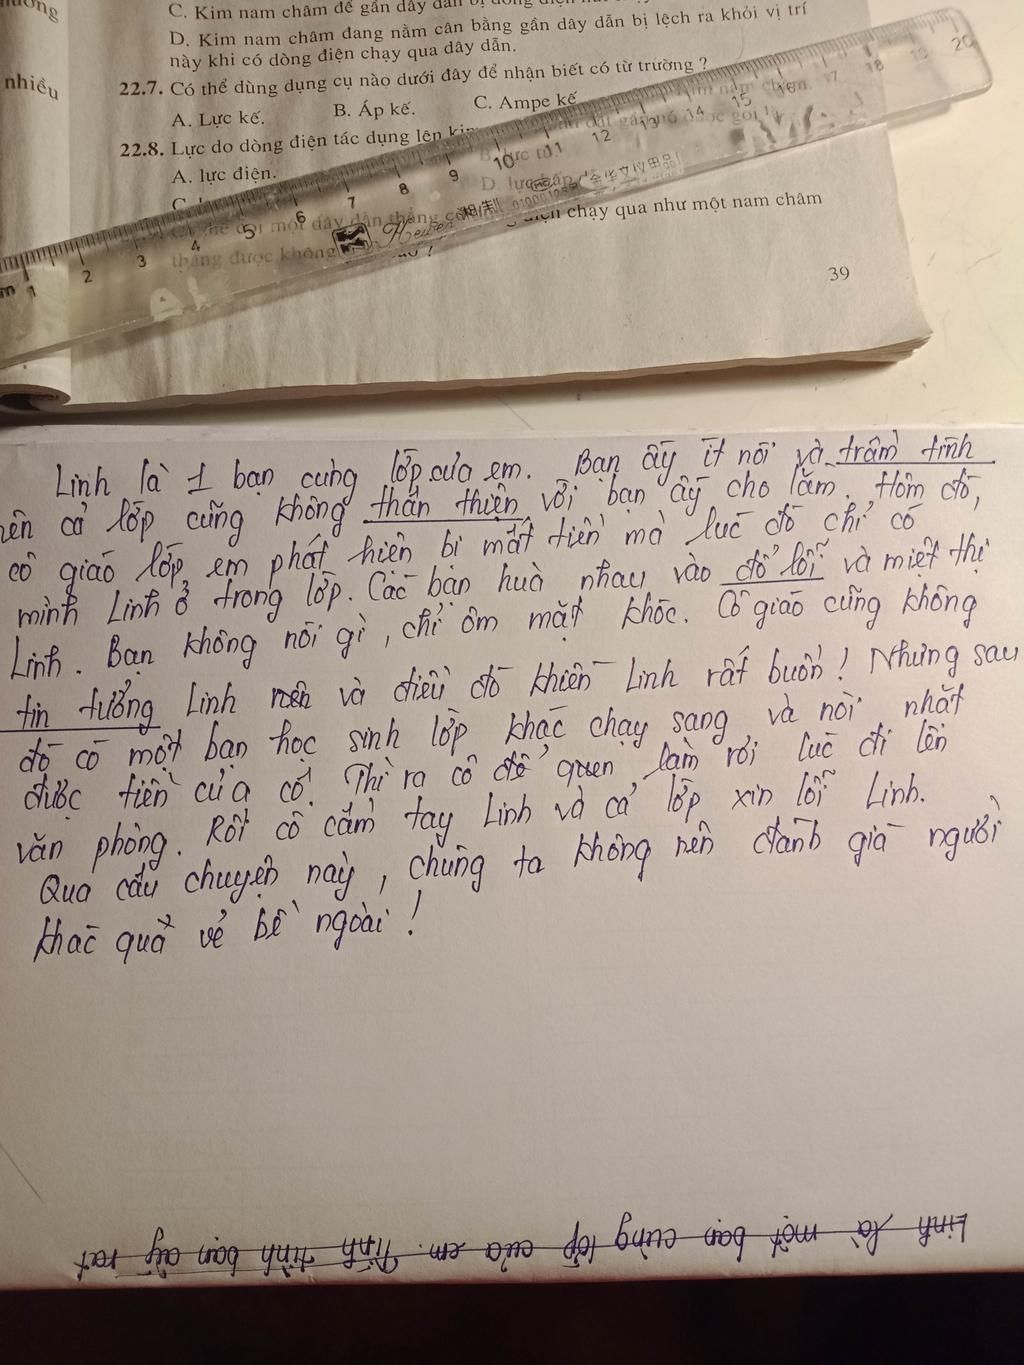 nhiều
C. Kim nam châm để gần dây dẫn bị
D. Kim nam châm đang nằm cân bằng gần dây dẫn bị lệch ra khỏi vị trí
này khi có dòng điện chạy qua dây dẫn.
22.7. Có thể dùng dụng cụ nào dưới đây để nhận biết có từ trường ?
A. Lực kế. B. Áp kế. C. Ampe kế
22.8. Lực do dòng điện tác dụng lên
A. lực điện.
D. lực
một dây dẫn thẳng chạy qua như một nam châm
thẳng được không
39
1 2 3 4 5 6 7 8 9 10 11 12 13 14 15 16 17 18 19 20
Linh là 1 bạn cùng lớp của em. Bạn ấy ít nói và trầm tính
nên cả lớp cũng không thân thiện với bạn ấy cho lắm. Hôm đó,
cô giáo lớp em phát hiện bị mất tiền mà lúc đó chỉ có
mình Linh ở trong lớp. Các bạn huà nhau vào đổ lỗi và miệt thị
Linh. Bạn không nói gì, chỉ ôm mặt khóc. Cô giáo cũng không
tin tưởng Linh nên và điều đó khiến Linh rất buồn! Nhưng sau
đó có một bạn học sinh lớp khác chạy sang và nói nhặt
được tiền của cô. Thì ra cô để quên, làm rơi lúc đi lên
văn phòng. Rồi cô cầm tay Linh và cả lớp xin lỗi Linh.
Qua câu chuyện này, chúng ta không nên đánh giá người
khác quả vẻ bề ngoài!
Linh là một bạn cùng lớp của em. Tính tình bạn ấy rất